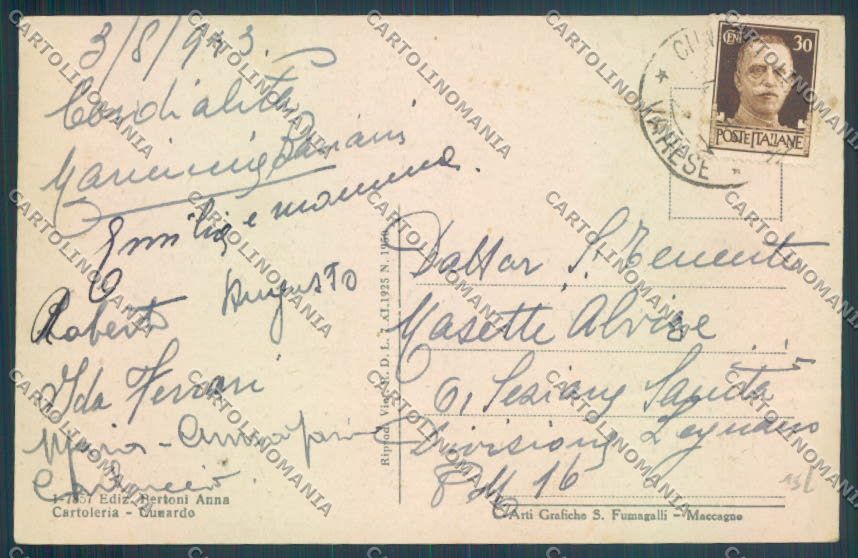 3/8/943.
Cordialità
Emilia e mamma.
Roberto Augusto
Ida Ferrari
Maria-Annamaria
Dottor S. Tenente
Masetti Alvise
61 Sezione Sanità
Divisione Legnano
PM 16
1-7857 Ediz. Bertoni Anna
Cartoleria - Cunardo
Riprod. Viet. R. D. L. 7 XI.1925 N. 1950
Arti Grafiche S. Fumagalli - Maccagno
CEN 30
POSTE ITALIANE
VARESE
CARTOLINOMANIA